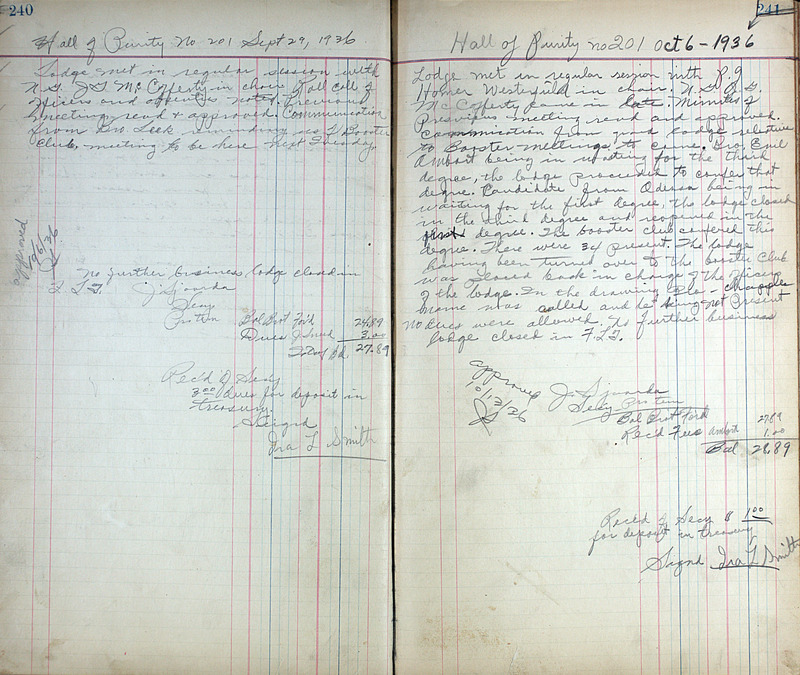 240
Hall of Purity No 201 Sept 29, 1936
Lodge met in regular session with
N.G. J.G. McCofferty in chair. Roll call of
officers and noted. Previous
meeting read & approved. Communication
from Bro. Leek reminding us of Booster
Club, meeting to be here next Tuesday
approved
10/6/36
No further business lodge closed in
F. L. T. J. Sjourda
Secy
Protem
Bal Brot Ford 24.89
Dues J Smed 3.00
Bal. 27.89
Rec'd of Secy
3.00 dues for deposit in
treasury.
Signd
Ira L Smith
241
Hall of Purity no 201 Oct 6 - 1936
Lodge met in regular session with P.G
Homer Westerfield in chair. N.G. J.G.
McCofferty came in late. Minutes of
Previous meeting read and approved.
Communication from grand lodge relative
to Booster meetings to come. Bro. Emil
Ambort being in waiting for the third
degree, the lodge proceeded to confer that
degree. Candidate from Odessa being in
waiting for the first degree, the lodge closed
in the third degree and reopened in the
first degree. The booster club confered this
degree. There were 34 present. The lodge
having been turned over to the booster club
was placed back in charge of the officers
of the lodge. In the drawing Geo - Chapple's
name was called and not being present
no dues were allowed. No further business
lodge closed in F.L.T.
approved
10/13/36
J. Sjourda
Secy Protem
Bal Brot Ford 27.89
Rec'd Fees Ambort 1.00
Bal 28.89
Rec'd of Secy $ 1.00
for deposit in treasury
Signd Ira L Smith